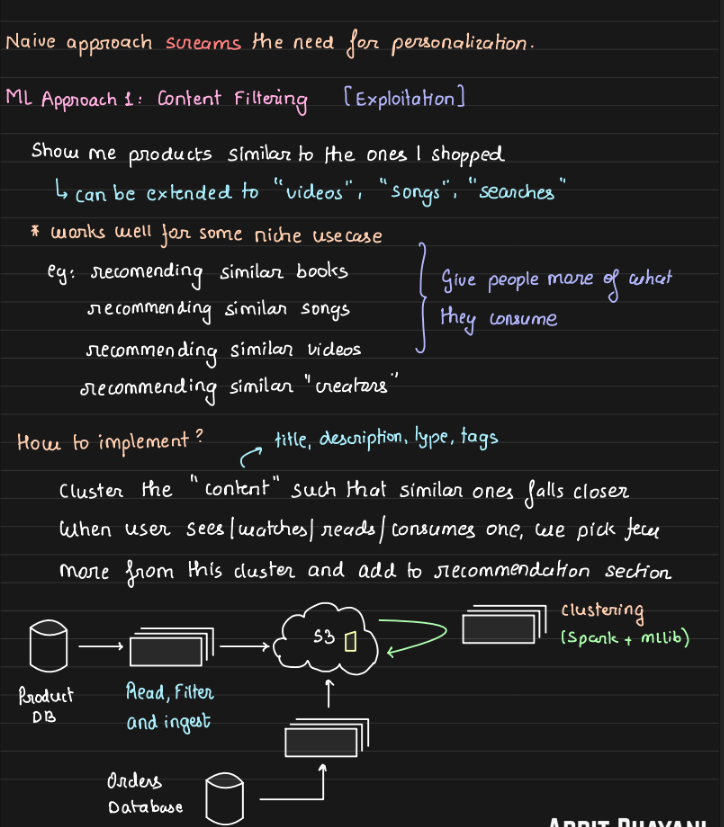 Naive approach screams the need for personalization.
ML Approach 1: Content Filtering [Exploitation]
Show me products similar to the ones I shopped
↳ can be extended to "videos", "songs", "searches"
* works well for some niche usecase
eg: recomending similar books
recommending similar songs
recommending similar videos
recommending similar "creators"
Give people more of what
they consume
How to implement?
title, description, type, tags
Cluster the "content" such that similar ones falls closer
When user sees/watches/reads/consumes one, we pick few
more from this cluster and add to recommendation section
Product
DB
Read, Filter
and ingest
S3
clustering
(Spark + mllib)
Orders
Database